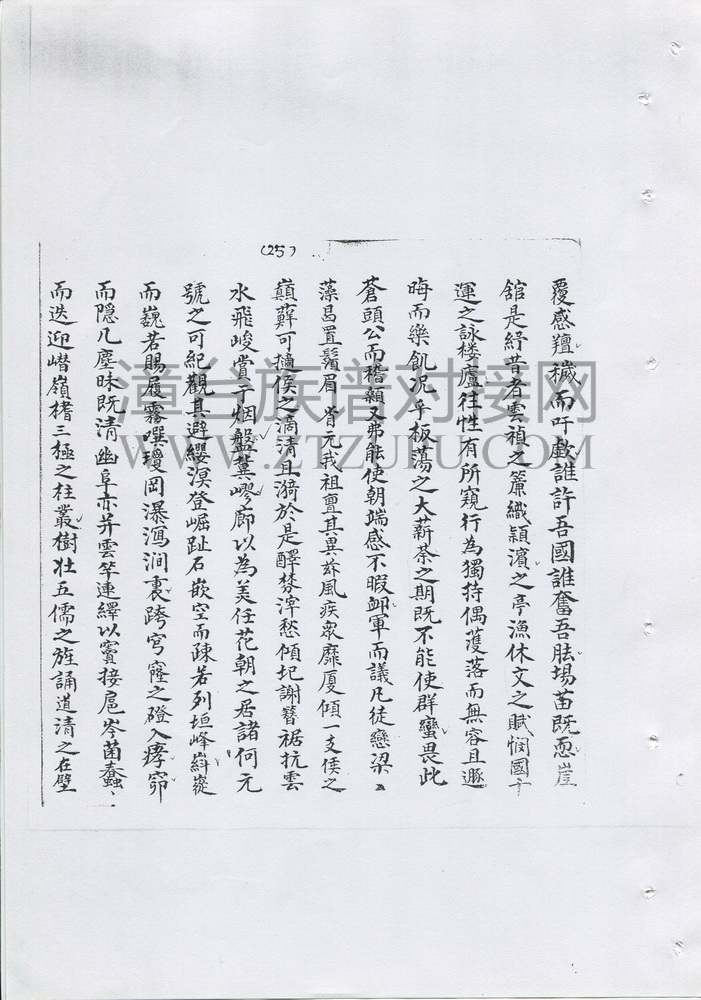 (25)
覆感羶穢而吁歔誰許吾國誰奮吾肱場苗既悳崖
舘是紓昔者雲禎之簾織潁濱之亭漁休文之賦憫國干
運之詠棲廬往性有所窺行為獨持偶蒦落而無容且遯
晦而樂飢况乎板蕩之大薪荼之期既不能使群蠻畏此
蒼頭公而稽顙又弗能使朝端感不暇卹軍而議凡徒戀梁
藻曷置鬚眉肯元我祖亶其異茲風疾衆靡厦傾一支俟之
巔薜可攄俟之滴清且漪於是醳棼滓愁傾圮謝簪裾抗雲
水飛峻賞于烟盤冀㟉廊以為美任花朝之居諸何元
號之可紀觀其避纓溟登崛趾石嵌空而疎若列垣峰㟁嵷
而巍若賜履霧噀瓊岡瀑瀉澗裏跨穹窿之磴入㾭窌
而隐几塵昧既清幽阜亦并雲竿連繹以竇接扈岑菌蠢
而迭迎嶜嶺㯂三極之柱叢樹壮五儒之旌誦道清之在壁
漳台族谱对接网
WWW.ZTZUPU.COM